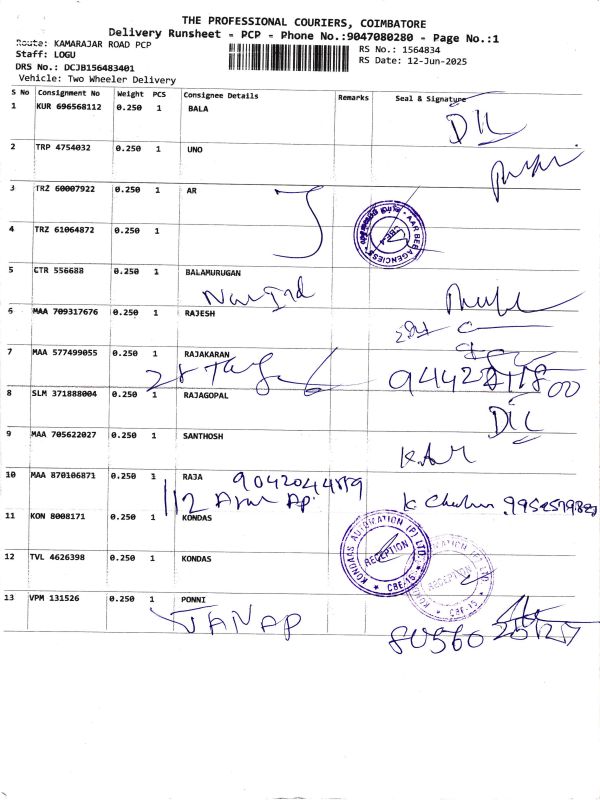 THE PROFESSIONAL COURIERS, COIMBATORE
Delivery Runsheet - PCP - Phone No.:9047080280 - Page No.:1
Route: KAMARAJAR ROAD PCP
Staff: LOGU
DRS No.: DCJB156483401
Vehicle: Two Wheeler Delivery
RS No.: 1564834
RS Date: 12-Jun-2025
S No Consignment No Weight PCS Consignee Details Remarks Seal & Signature
1 KUR 696568112 0.250 1 BALA
2 TRP 4754032 0.250 1 UNO
3 TRZ 60007922 0.250 1 AR
4 TRZ 61064872 0.250 1
5 CTR 556688 0.250 1 BALAMURUGAN
6 MAA 709317676 0.250 1 RAJESH
7 MAA 577499055 0.250 1 RAJAKARAN
8 SLM 371888004 0.250 1 RAJAGOPAL
9 MAA 705622027 0.250 1 SANTHOSH
10 MAA 870106871 0.250 1 RAJA
112
11 KON 8008171 0.250 1 KONDAS
KONDAAS AUTOMATION (P) LTD. RECEPTION CBE-15
12 TVL 4626398 0.250 1 KONDAS
KONDAAS AUTOMATION (P) LTD. RECEPTION CBE-15
13 VPM 131526 0.250 1 PONNI